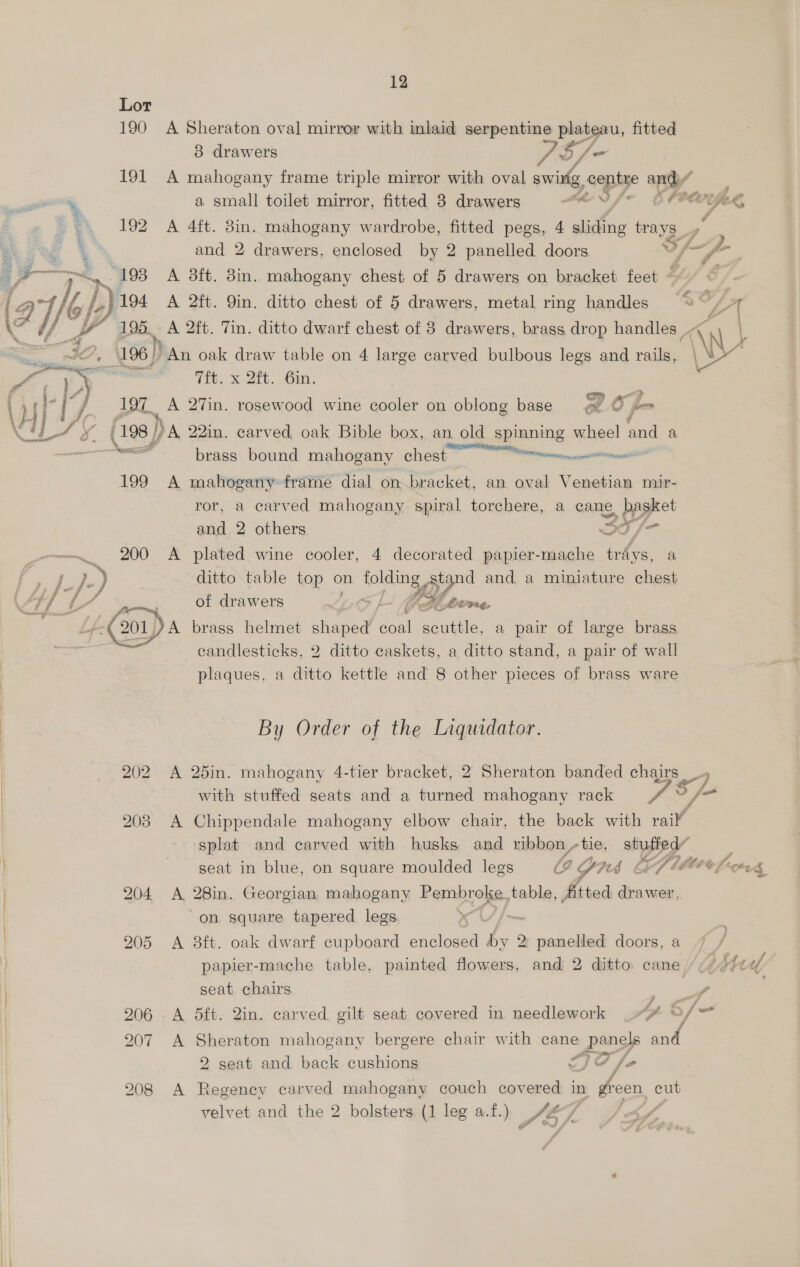 12
Lot
190 A Sheraton oval mirror with inlaid serpentine plateau, fitted
3 drawers
191 A mahogany frame triple mirror with oval swing centre and
a small toilet mirror, fitted 3 drawers
192 A 4ft. 3in. mahogany wardrobe, fitted pegs, 4 sliding trays
and 2 drawers, enclosed by 2 panelled doors
193 A 3ft. 3in. mahogany chest of 5 drawers on bracket feet
194 A 2ft. 9in. ditto chest of 5 drawers, metal ring handles
195 A 2ft. 7in. ditto dwarf chest of 3 drawers, brass drop handles
196 An oak draw table on 4 large carved bulbous legs and rails,
7ft. x 2ft. 6in.
197 A 27in. rosewood wine cooler on oblong base
198 A 22in. carved oak Bible box, an old spinning wheel and a
brass bound mahogany chest
199 A mahogany frame dial on bracket, an oval Venetian mir-
ror, a carved mahogany spiral torchere, a cane basket
and 2 others
200 A plated wine cooler, 4 decorated papier-mache trays, a
ditto table top on folding stand and a miniature chest
of drawers
201 A brass helmet shaped coal scuttle, a pair of large brass
candlesticks, 2 ditto caskets, a ditto stand, a pair of wall
plaques, a ditto kettle and 8 other pieces of brass ware
By Order of the Liquidator.
202 A 25in. mahogany 4-tier bracket, 2 Sheraton banded chairs
with stuffed seats and a turned mahogany rack
203 A Chippendale mahogany elbow chair, the back with rail
splat and carved with husks and ribbon tie, stuffed
seat in blue, on square moulded legs
204 A 28in. Georgian mahogany Pembroke table, fitted drawer,
on square tapered legs
205 A 3ft. oak dwarf cupboard enclosed by 2 panelled doors, a
papier-mache table, painted flowers, and 2 ditto cane
seat chairs
206 A 5ft. 2in. carved gilt seat covered in needlework
207 A Sheraton mahogany bergere chair with cane panels and
2 seat and back cushions
208 A Regency carved mahogany couch covered in green cut
velvet and the 2 bolsters (1 leg a.f.)